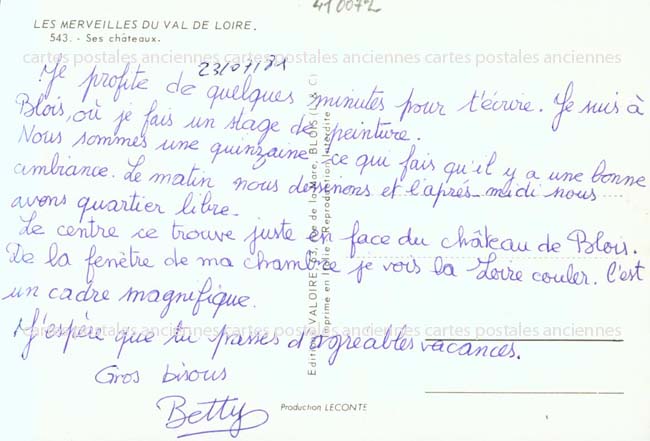 410072
LES MERVEILLES DU VAL DE LOIRE.
543. - Ses châteaux.
cartes postales anciennes cartes postales anciennes cartes postales anciennes
23/07/71
Je profite de quelques minutes pour t'écrire. Je suis à
Blois, où je fais un stage de peinture.
Nous sommes une quinzaine ce qui fais qu'il y a une bonne
ambiance. Le matin nous dessinons et l'après-midi nous
avons quartier libre.
Le centre ce trouve juste en face du château de Blois.
De la fenêtre de ma chambre je vois la Loire couler. C'est
un cadre magnifique.
cartes postales anciennes cartes postales anciennes cartes postales anciennes
J'espère que tu passes d'agréables vacances.
Gros bisous
Betty
Production LECONTE
VALOIRE
BLOIS
Imprimé en Italie
Reproduction interdite